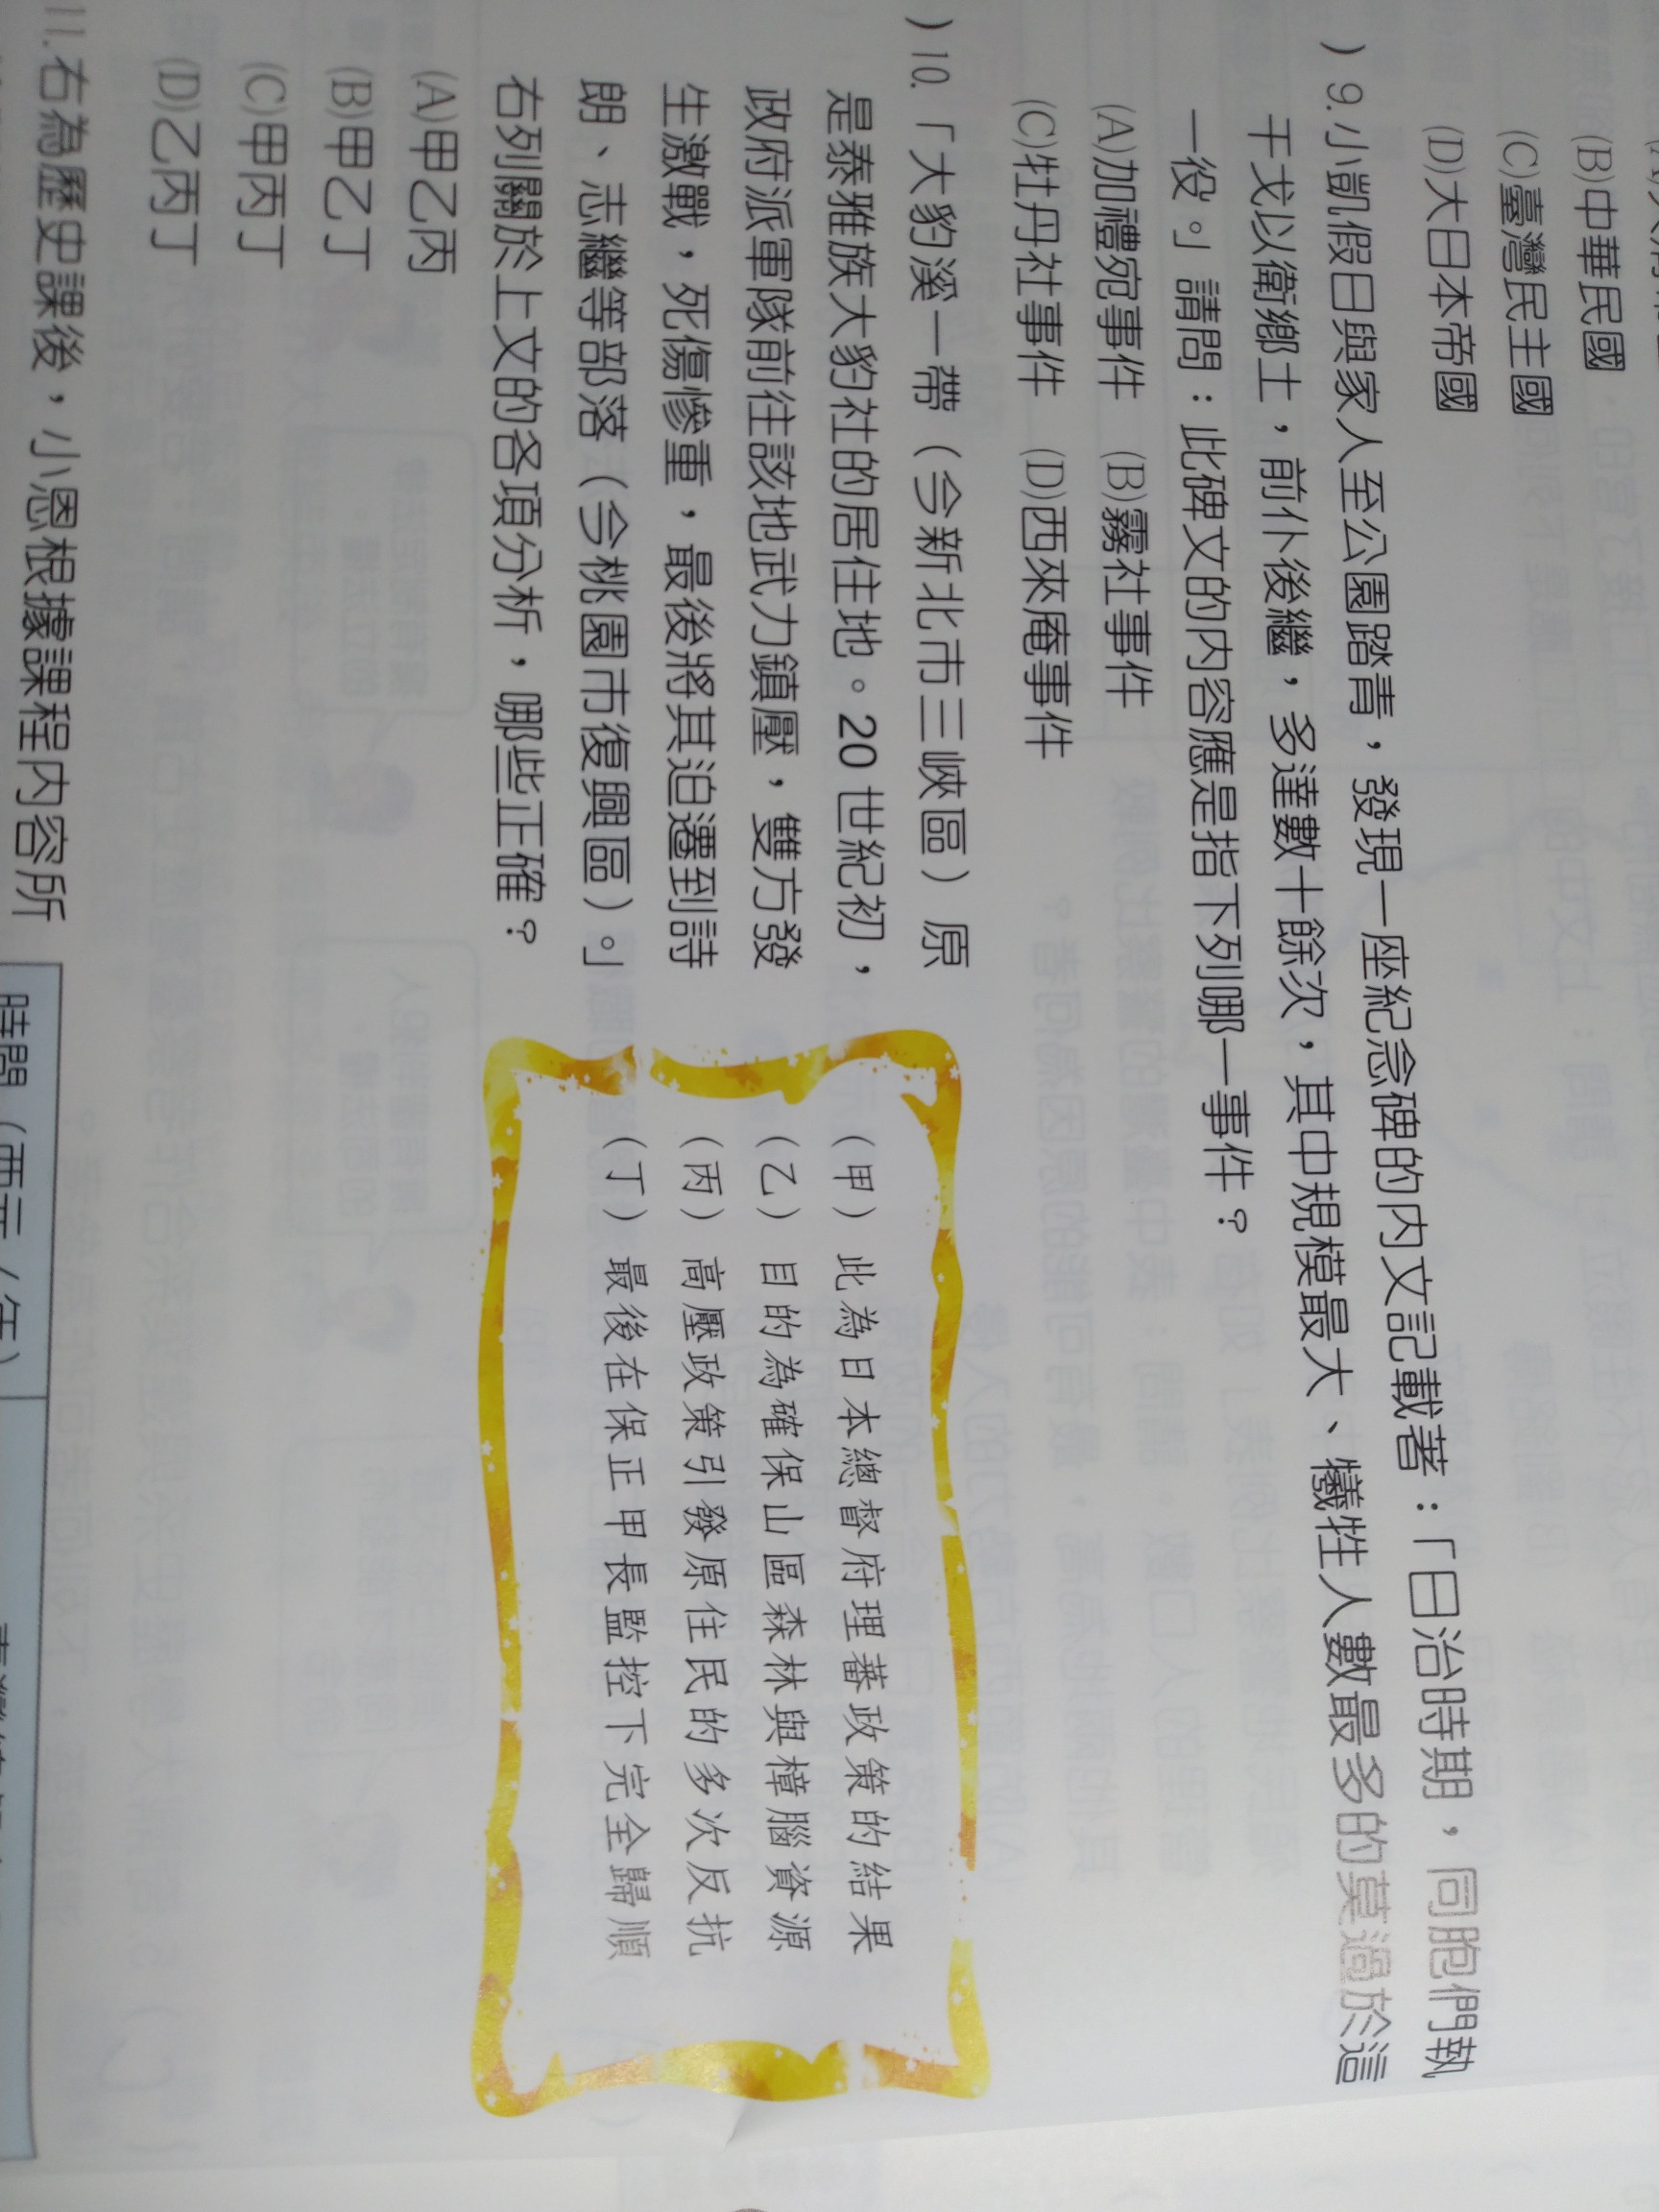 (B)中華民國
(C)臺灣民主國
(D)大日本帝國
) 9. 小凱假日與家人至公園踏青，發現一座紀念碑的內文記載著：「日治時期，同胞們執
干戈以衛鄉土，前仆後繼，多達數十餘次，其中規模最大、犧牲人數最多的莫過於這
一役。」請問：此碑文的內容應是指下列哪一事件？
(A)加禮宛事件 (B)霧社事件
(C)牡丹社事件 (D)西來庵事件
) 10. 「大豹溪一帶（今新北市三峽區）原
是泰雅族大豹社的居住地。20世紀初，
政府派軍隊前往該地武力鎮壓，雙方發
生激戰，死傷慘重，最後將其迫遷到詩
朗、志繼等部落（今桃園市復興區）。」
右列關於上文的各項分析，哪些正確？
(A)甲乙丙
(B)甲乙丁
(C)甲丙丁
(D)乙丙丁
（甲）此為日本總督府理蕃政策的結果
（乙）目的為確保山區森林與樟腦資源
（丙）高壓政策引發原住民的多次反抗
（丁）最後在保正甲長監控下完全歸順
11. 右為歷史課後，小恩根據課程內容所
時間（西元/年）